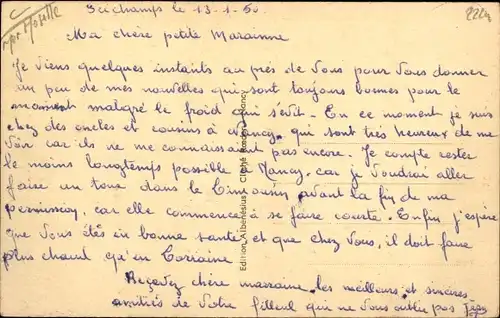 Seichamps le 13-1-50.
2224
Ma chère petite Marainne
Je viens quelques instants au près de Vous pour Vous donner
un peu de mes nouvelles qui sont toujours bonnes pour le
moment malgré le froid qui sévit. En ce moment je suis
chez des oncles et cousins à Nancy, qui sont très heureux de me
voir car ils ne me connaissaient pas encore. Je compte rester
le moins longtemps possible à Nancy, car je voudrai aller
faire un tour dans le Limousin avant la fin de ma
permission, car elle commence à se faire courte. Enfin j'espère
que Vous êtes en bonne santé et que chez Vous, il doit faire
plus chaud qu'en Lorraine
Recevez chère marraine les meilleurs et sincères
amitiés de Votre filleul qui ne Vous oublie pas
Edition Albénésius - Cliché Nancy